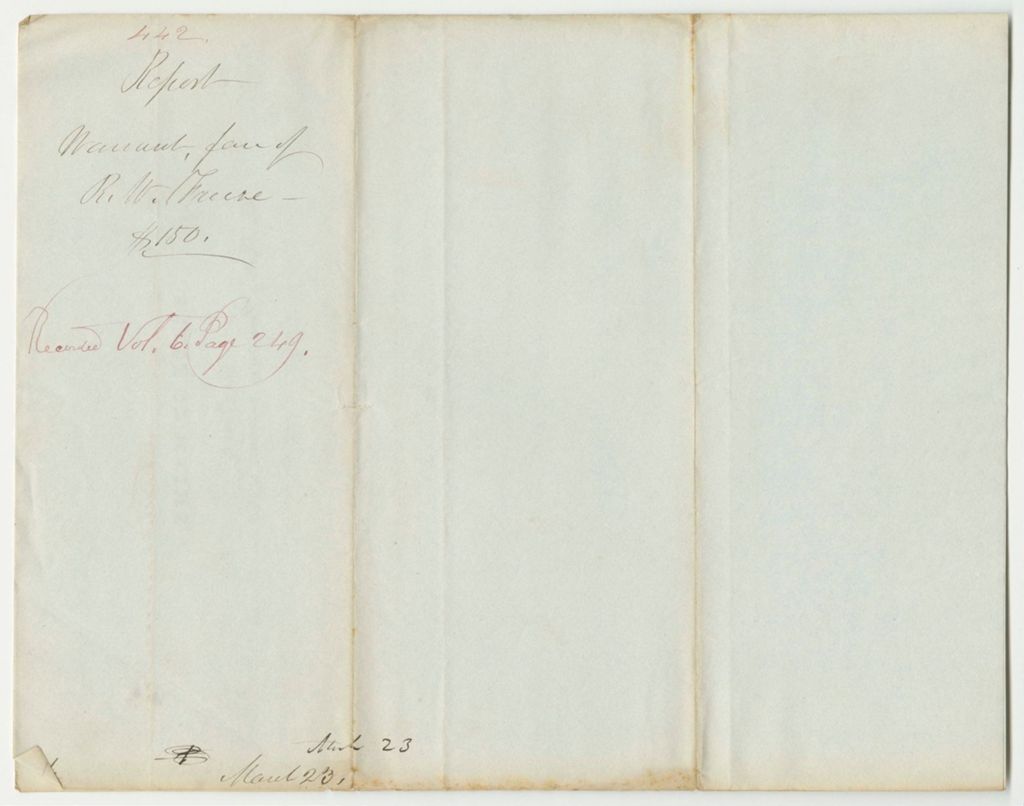 442.
Report
Warrant, fav of
R. W. –
$150.
Recorded Vol. 6. Page 249.
23
March 23,